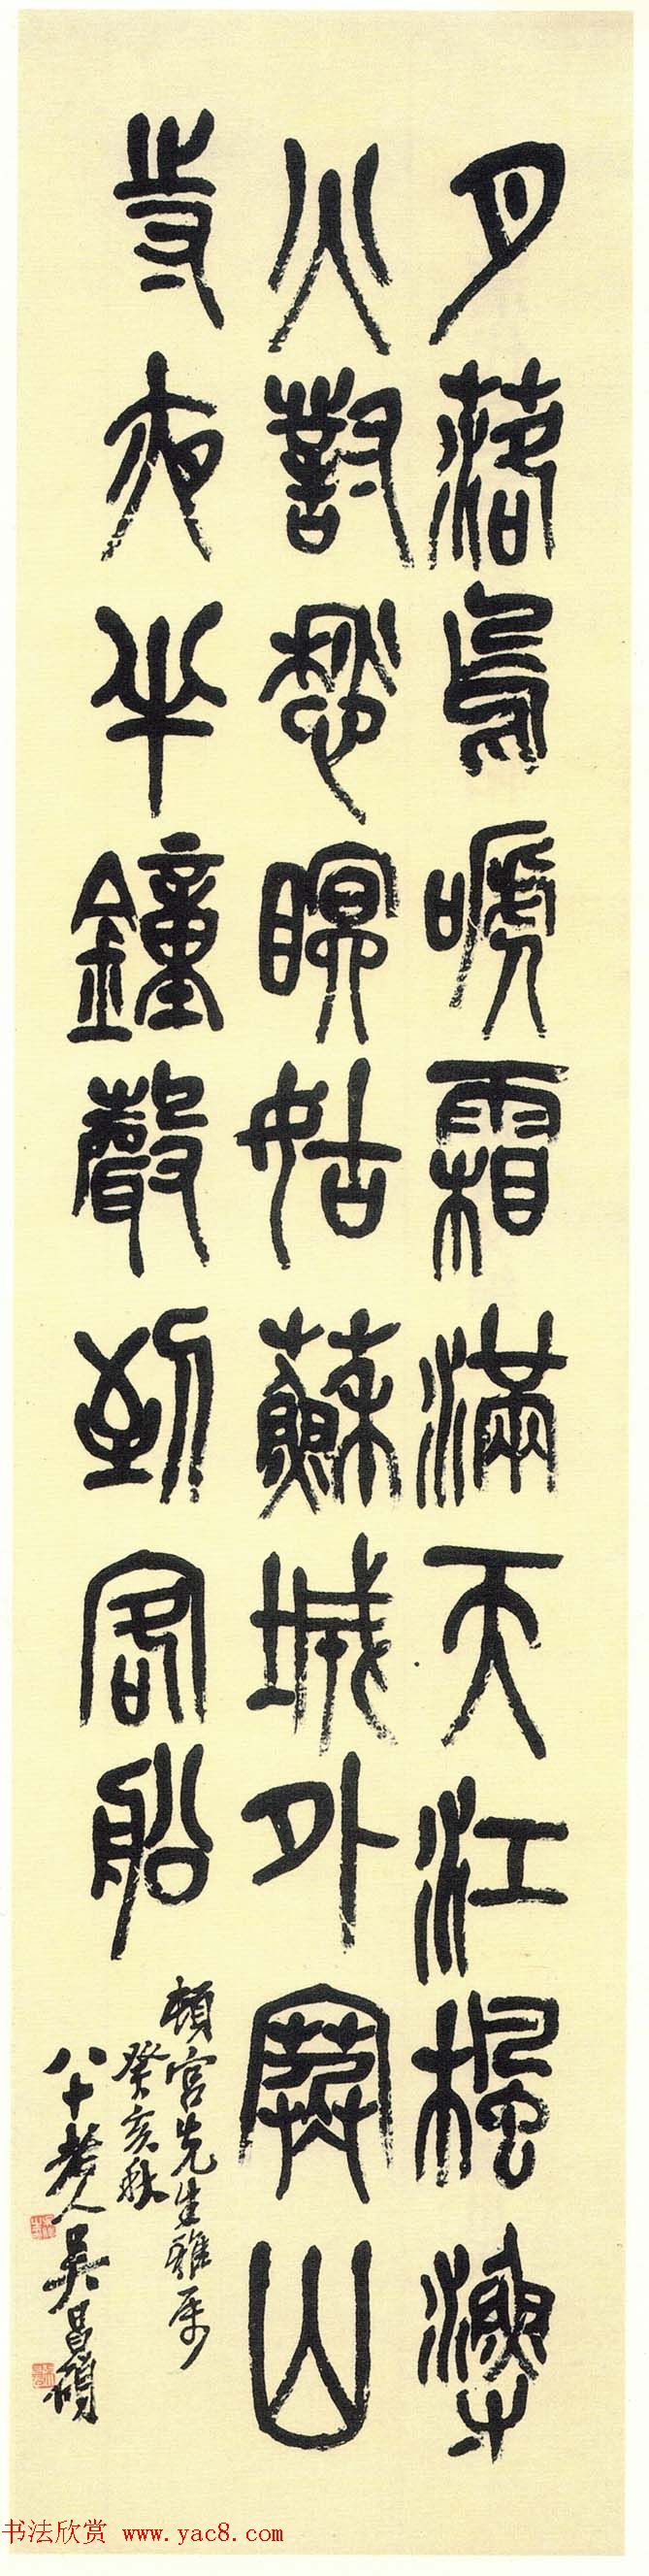 月落烏嗁霜滿天江楓漁
火對愁瞑姑蘇城外寒山
寺夜半鐘聲到客船
頓宮先生雅屬
癸亥秋
八十老人吳昌碩
书法欣赏 www.yac8.com